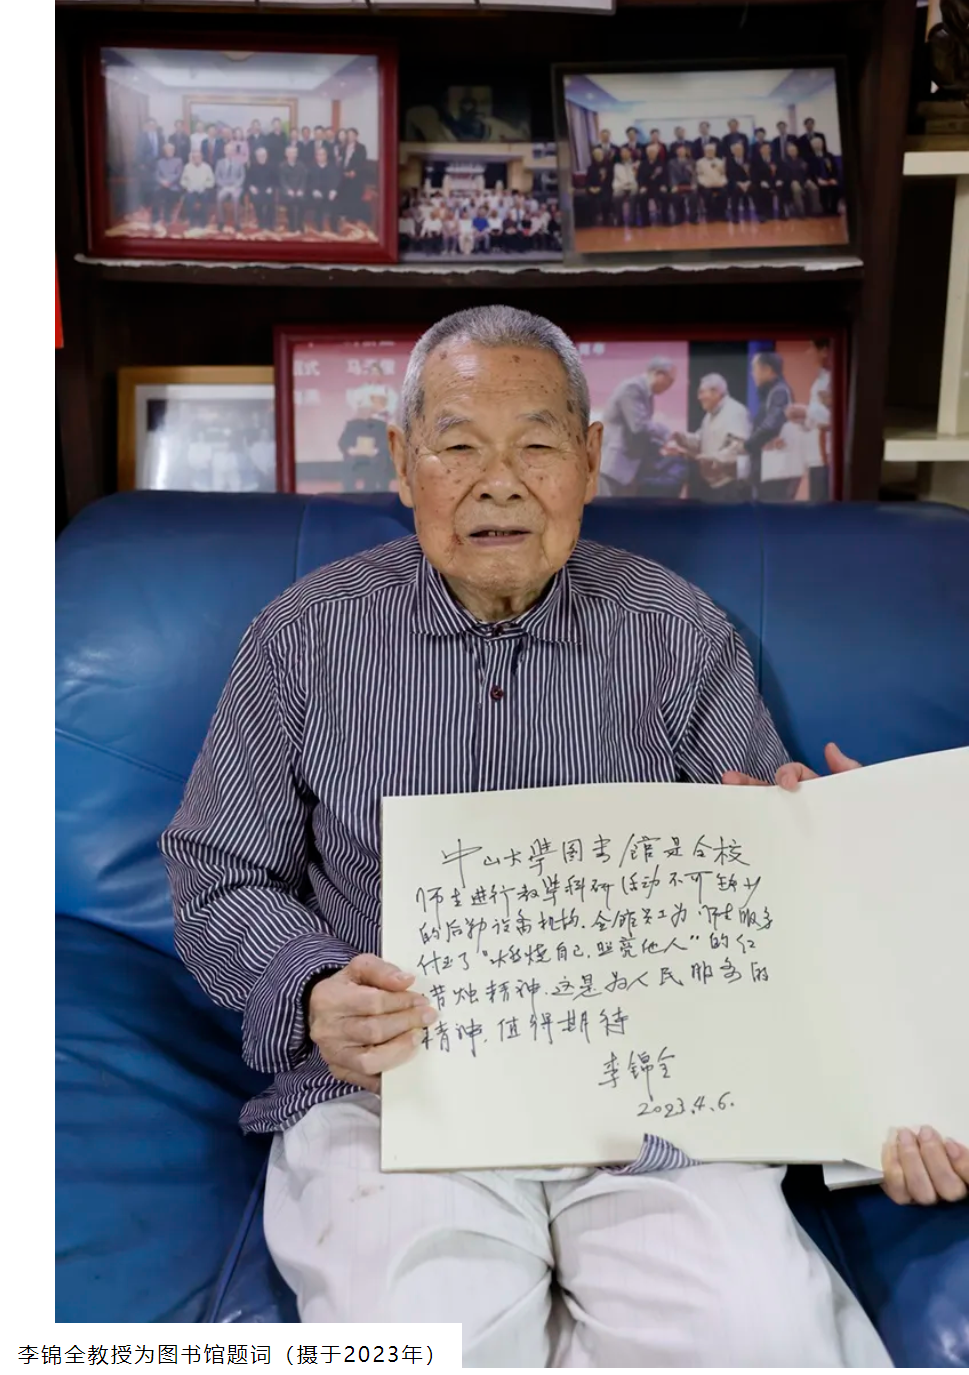 仪式
中山大学图书馆是全校
师生进行教学科研活动不可缺少
的后勤设备机构.全馆员工为师生服务
付出了“燃烧自己.照亮他人”的红
蜡烛精神.这是为人民服务的
精神.值得期待
李锦全
2023.4.6.
李锦全教授为图书馆题词（摄于2023年）